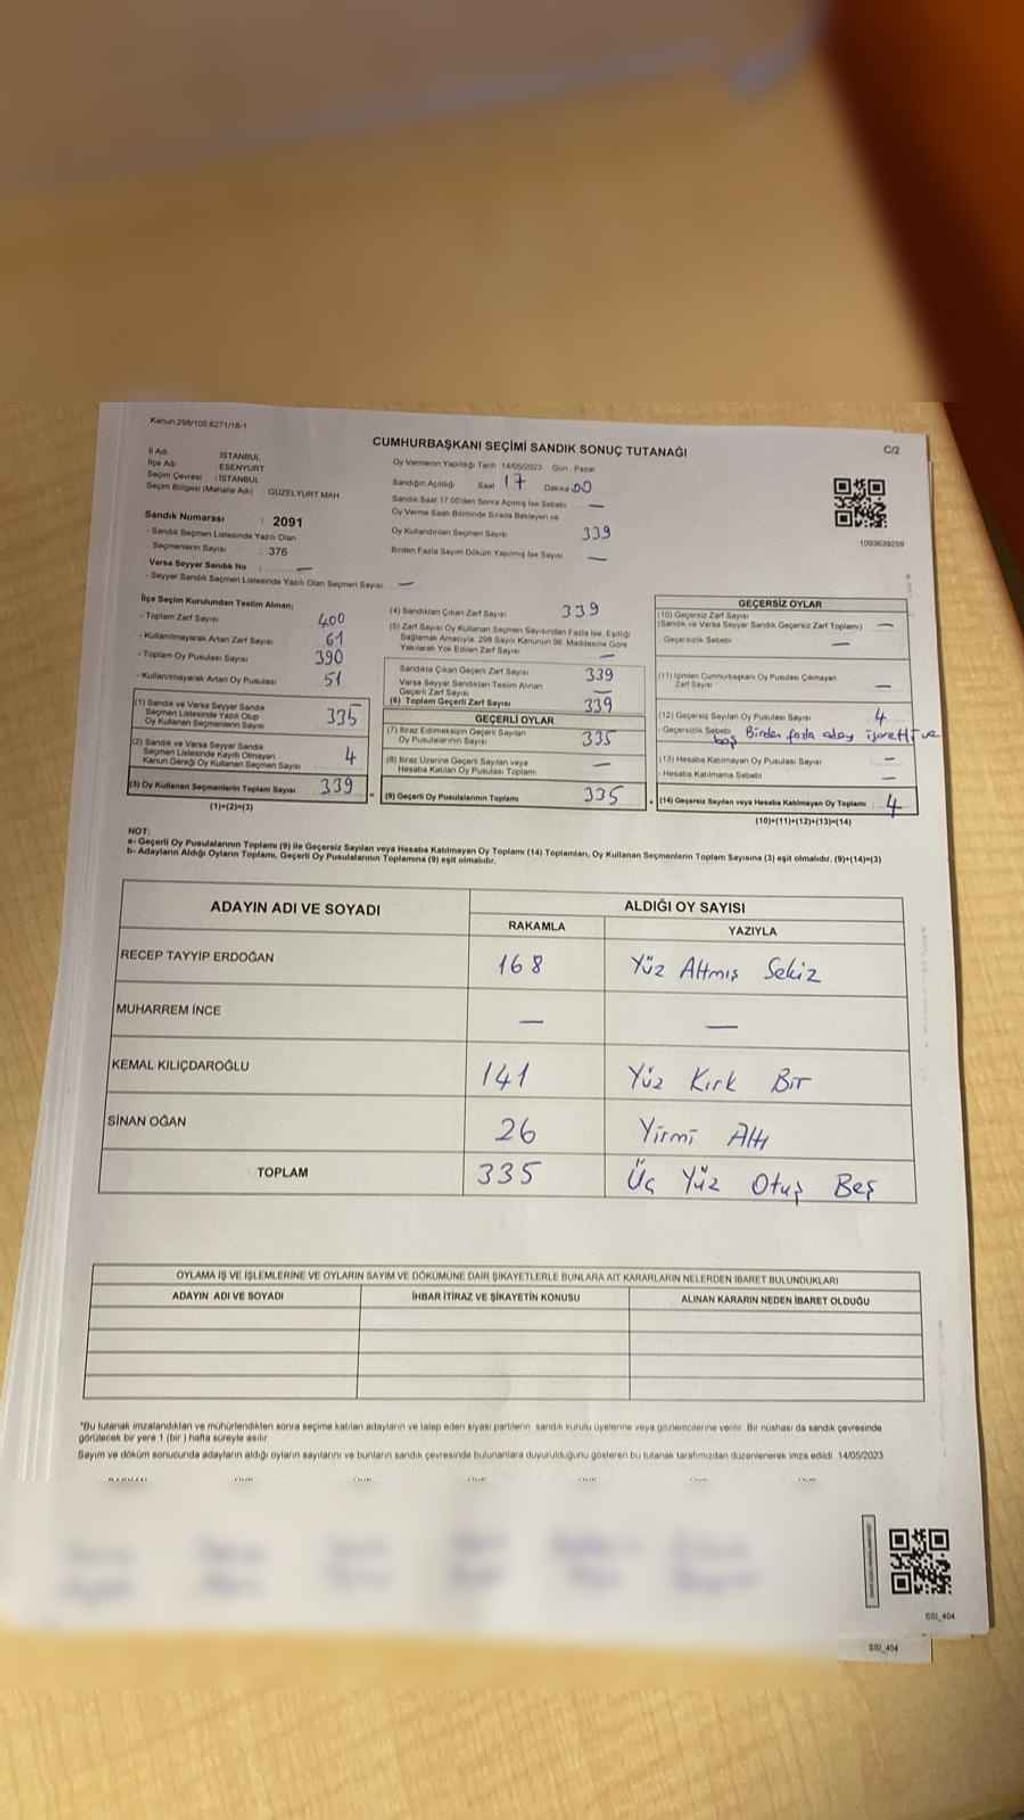 Kanun 298/105 6271/18-1
CUMHURBAŞKANI SEÇİMİ SANDIK SONUÇ TUTANAĞI
C/2
İl Adı : İSTANBUL
İlçe Adı : ESENYURT
Seçim Çevresi : İSTANBUL
Seçim Bölgesi (Mahalle Adı) : GÜZELYURT MAH
Sandık Numarası : 2091
- Sandık Seçmen Listesinde Yazılı Olan
Seçmenlerin Sayısı : 376
Varsa Seyyar Sandık No : —
- Seyyar Sandık Seçmen Listesinde Yazılı Olan Seçmen Sayısı : —
Oy Vermenin Yapıldığı Tarih : 14/05/2023 Gün : Pazar
Sandığın Açıldığı Saat 17 Dakika 00
Sandık Saat 17.00'den Sonra Açılmış İse Sebebi —
Oy Verme Saati Bitiminde Sırada Bekleyen ve
Oy Kullandırılan Seçmen Sayısı 339
Birden Fazla Sayım Döküm Yapılmış İse Sayısı —
1093639259
İlçe Seçim Kurulundan Teslim Alınan;
- Toplam Zarf Sayısı 400
- Kullanılmayarak Artan Zarf Sayısı 61
- Toplam Oy Pusulası Sayısı 390
- Kullanılmayarak Artan Oy Pusulası 51
(1) Sandık ve Varsa Seyyar Sandık
Seçmen Listesinde Yazılı Olup
Oy Kullanan Seçmenlerin Sayısı 335
(2) Sandık ve Varsa Seyyar Sandık
Seçmen Listesinde Kayıtlı Olmayan
Kanun Gereği Oy Kullanan Seçmen Sayısı 4
(3) Oy Kullanan Seçmenlerin Toplam Sayısı 339
(1)+(2)=(3)
(4) Sandıktan Çıkan Zarf Sayısı 339
(5) Zarf Sayısı Oy Kullanan Seçmen Sayısından Fazla İse, Eşitliği
Sağlamak Amacıyla, 298 Sayılı Kanunun 98. Maddesine Göre
Yakılarak Yok Edilen Zarf Sayısı —
Sandıkta Çıkan Geçerli Zarf Sayısı 339
Varsa Seyyar Sandıktan Teslim Alınan
Geçerli Zarf Sayısı —
(6) Toplam Geçerli Zarf Sayısı 339
GEÇERLİ OYLAR
(7) İtiraz Edilmeksizin Geçerli Sayılan
Oy Pusulalarının Sayısı 335
(8) İtiraz Üzerine Geçerli Sayılan veya
Hesaba Katılan Oy Pusulası Toplamı —
(9) Geçerli Oy Pusulalarının Toplamı 335
GEÇERSİZ OYLAR
(10) Geçersiz Zarf Sayısı
(Sandık ve Varsa Seyyar Sandık Geçersiz Zarf Toplamı) —
Geçersizlik Sebebi —
(11) İçinden Cumhurbaşkanı Oy Pusulası Çıkmayan
Zarf Sayısı —
(12) Geçersiz Sayılan Oy Pusulası Sayısı 4
- Geçersizlik Sebebi Birden fazla aday işaretli ve
boş
(13) Hesaba Katılmayan Oy Pusulası Sayısı —
- Hesaba Katılmama Sebebi —
(14) Geçersiz Sayılan veya Hesaba Katılmayan Oy Toplamı 4
(10)+(11)+(12)+(13)=(14)
NOT:
a- Geçerli Oy Pusulalarının Toplamı (9) ile Geçersiz Sayılan veya Hesaba Katılmayan Oy Toplamı (14) Toplamları, Oy Kullanan Seçmenlerin Toplam Sayısına (3) eşit olmalıdır. (9)+(14)=(3)
b- Adayların Aldığı Oyların Toplamı, Geçerli Oy Pusulalarının Toplamına (9) eşit olmalıdır.
ADAYIN ADI VE SOYADI
ALDIĞI OY SAYISI
RAKAMLA YAZIYLA
RECEP TAYYİP ERDOĞAN 168 Yüz Altmış Sekiz
MUHARREM İNCE — —
KEMAL KILIÇDAROĞLU 141 Yüz Kırk Bir
SİNAN OĞAN 26 Yirmi Altı
TOPLAM 335 Üç Yüz Otuş Beş
OYLAMA İŞ VE İŞLEMLERİNE VE OYLARIN SAYIM VE DÖKÜMÜNE DAİR ŞİKAYETLERLE BUNLARA AİT KARARLARIN NELERDEN İBARET BULUNDUKLARI
ADAYIN ADI VE SOYADI İHBAR İTİRAZ VE ŞİKAYETİN KONUSU ALINAN KARARIN NEDEN İBARET OLDUĞU
*Bu tutanak imzalandıktan ve mühürlendikten sonra seçime katılan adayların ve talep eden siyasi partilerin sandık kurulu üyelerine veya gözlemcilerine verilir. Bir nüshası da sandık çevresinde
görülecek bir yere 1 (bir) hafta süreyle asılır.
Sayım ve döküm sonucunda adayların aldığı oyların sayılarını ve bunların sandık çevresinde bulunanlara duyurulduğunu gösteren bu tutanak tarafımızdan düzenlenerek imza edildi. 14/05/2023
SSI_404
SSI_404